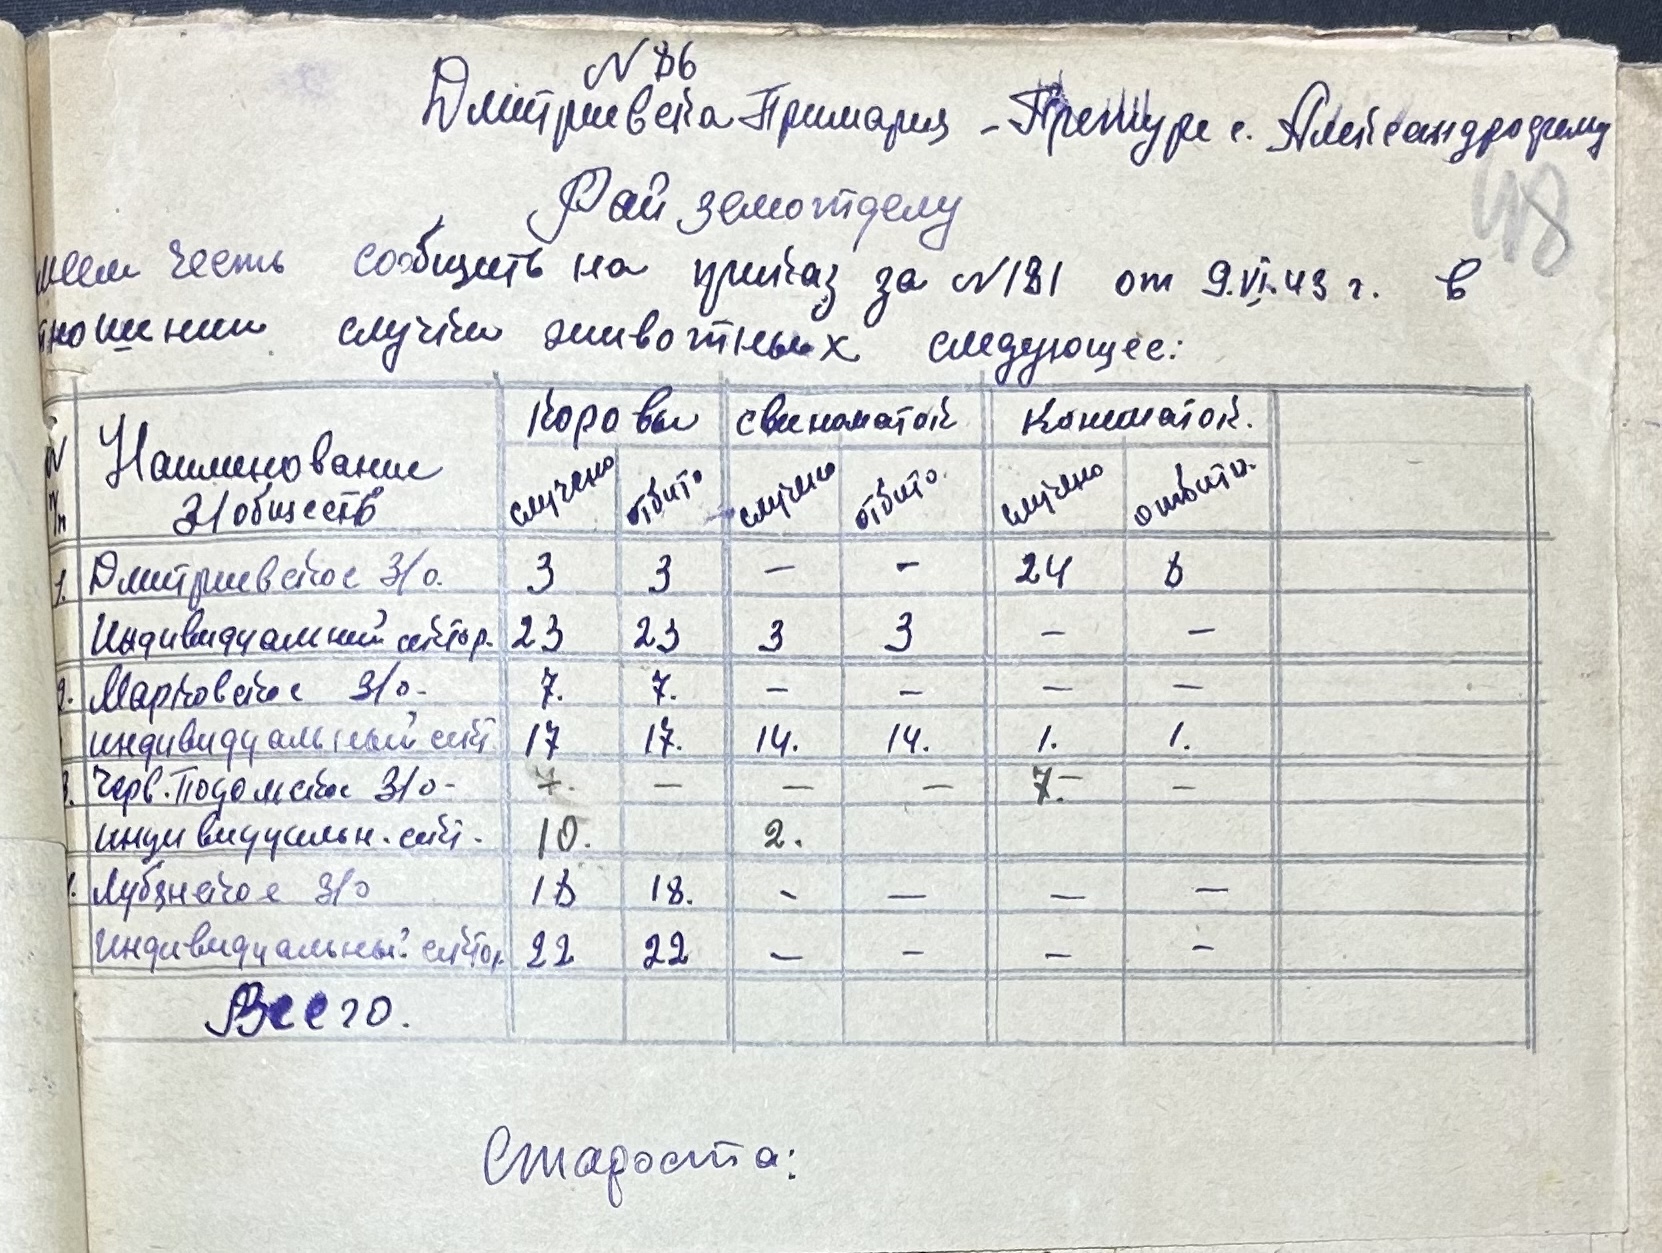 N 86
Дмитриевска Примария - Претуре с. Александродгему
48
Рай земотделу
меем честь сообщить на приказ за N181 от 9.VI.43 г. в
тношении случки животных следующее:
N п/п Наименование З/обществ Коровы свиноматок Кониматок.
случено отбито случено отбито. случено отбито.
1. Дмитриевское З/о. 3 3 — - 24 8
Индивидуальний сектор. 23 23 3 3 — —
2. Марковское З/о- 7. 7. — — — —
индивидуальный сект 17 17. 14. 14. 1. 1.
3. Черв. Подольское З/о- 7. — — — 7.- —
индивидуальн. сект. 10. 2.
4. Лубенское З/о 18 18. - — — —
индивидуальный сектор. 22 22 — — — —
Всего.
Староста: